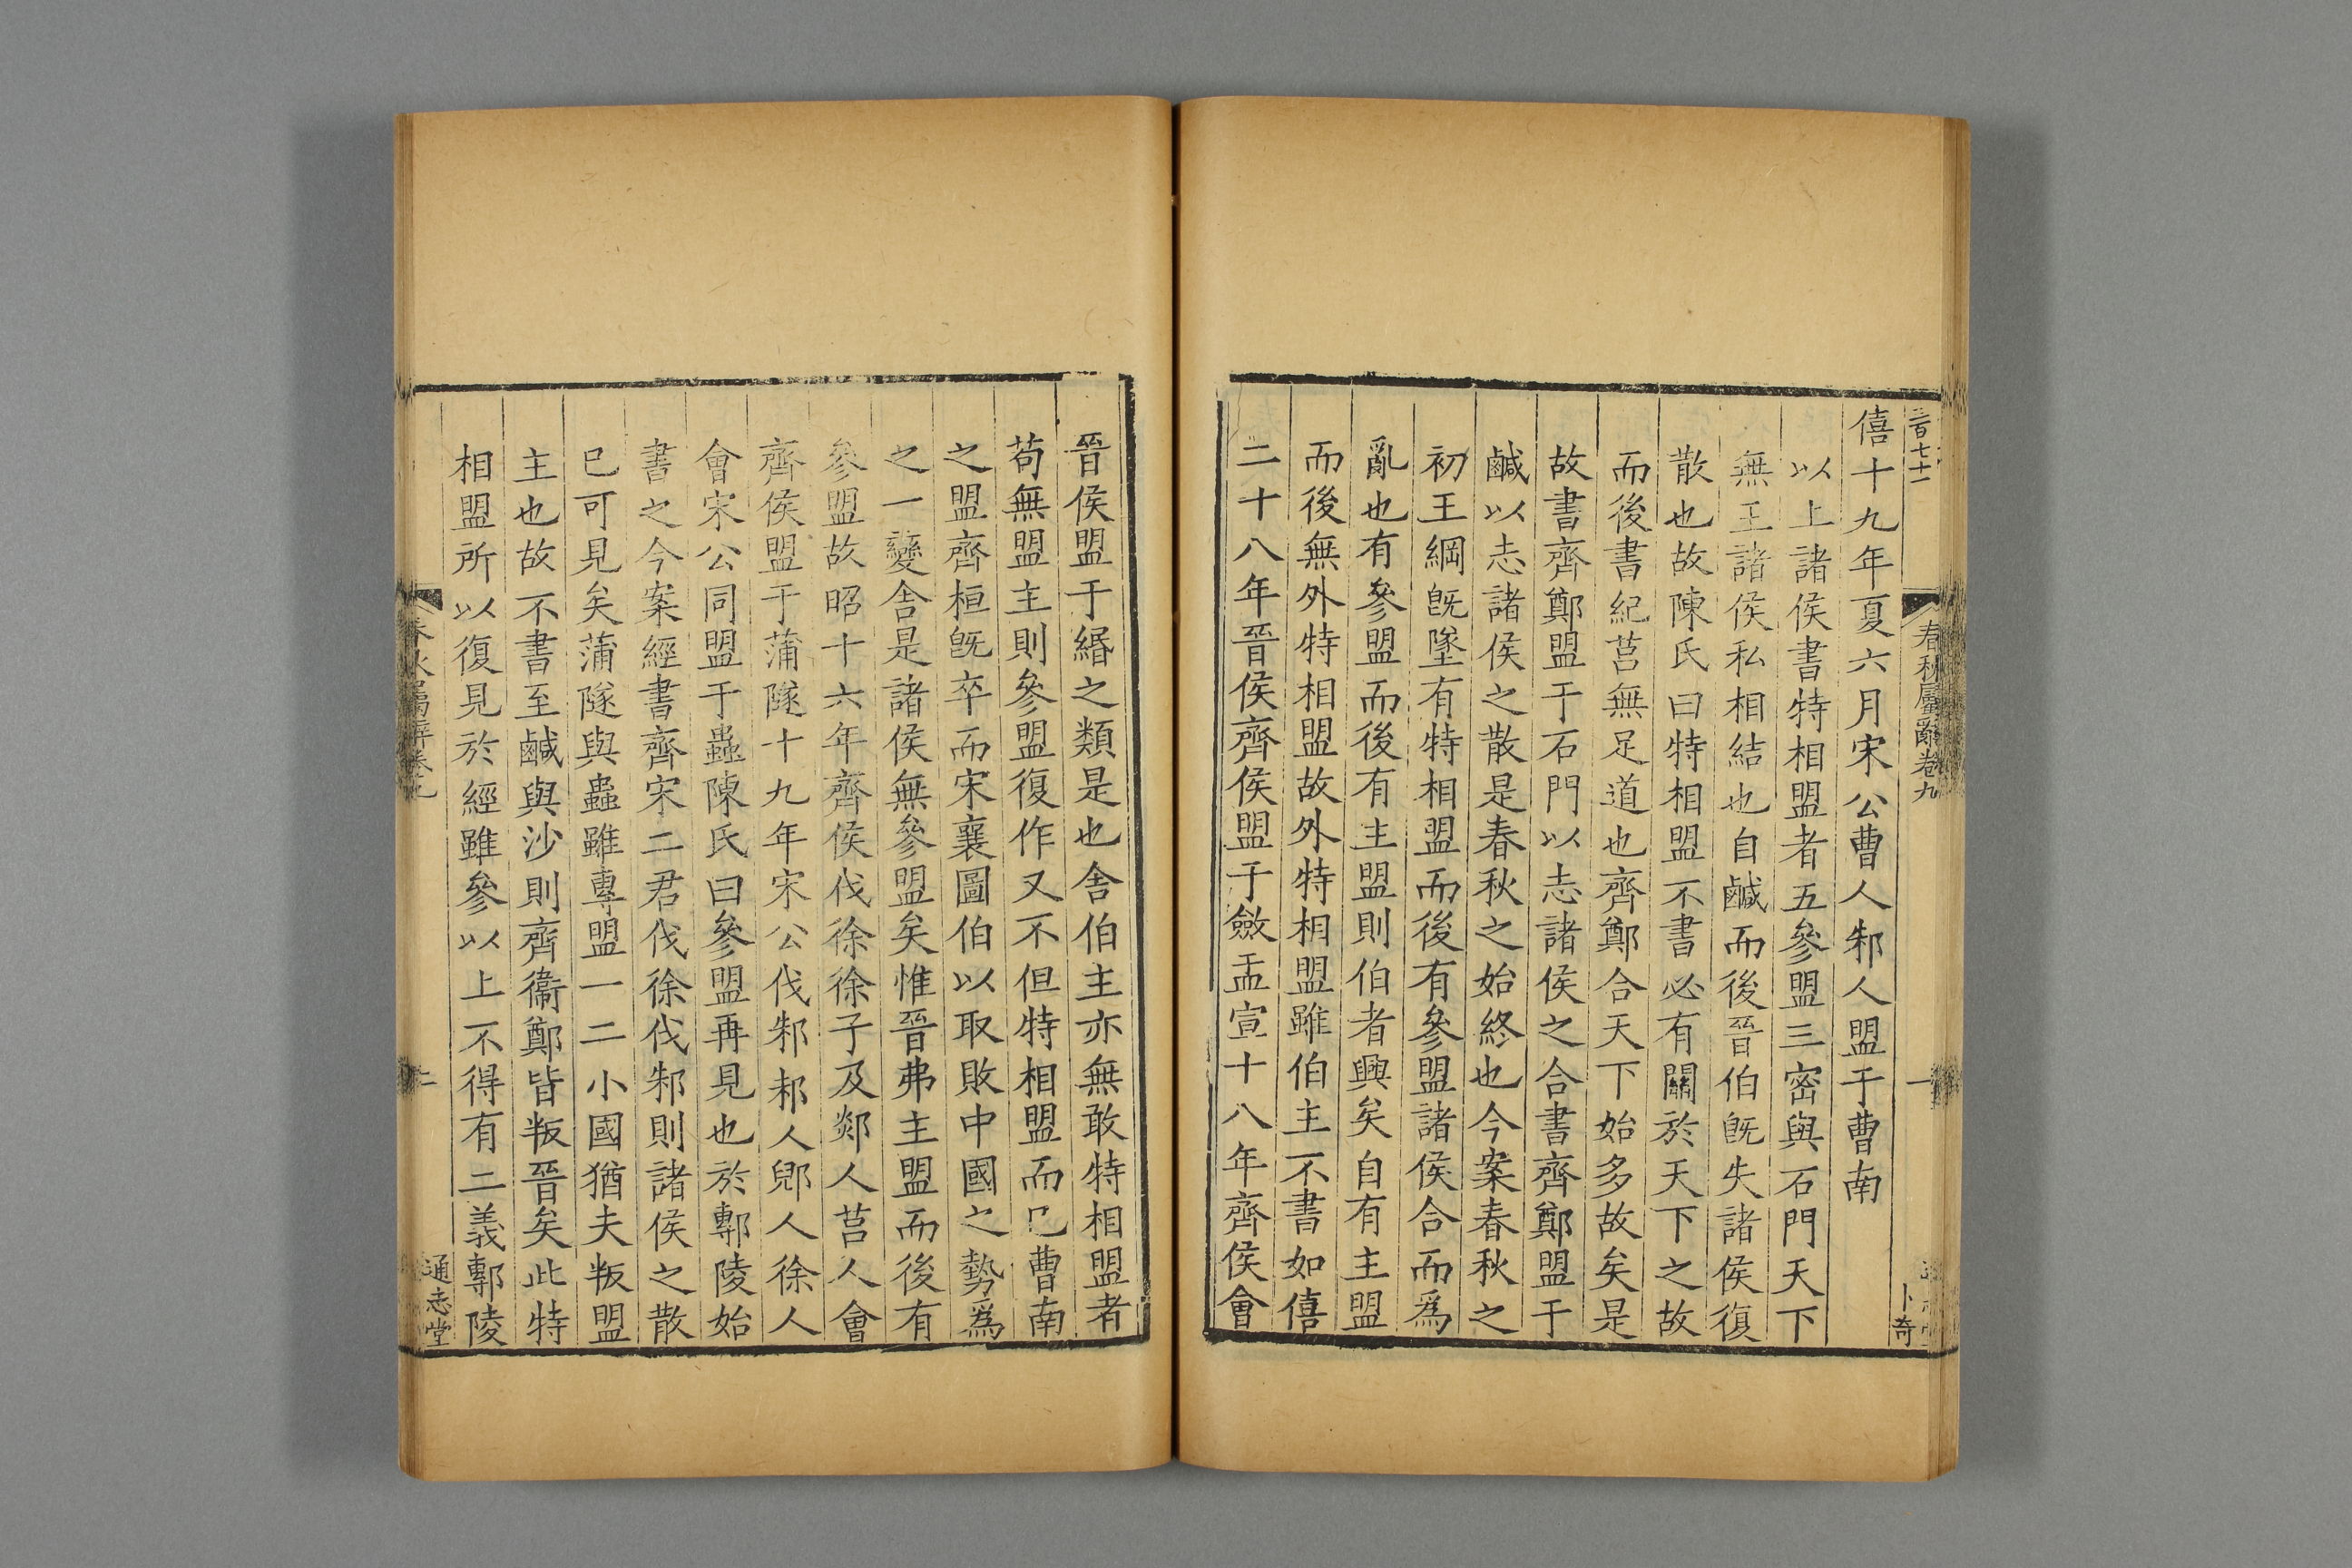 春秋屬辭卷九
一
卜奇
僖十九年夏六月宋公曹人邾人盟于曹南
以上諸侯書特相盟者五參盟三密與石門天下
無王諸侯私相結也自鹹而後晉伯旣失諸侯復
散也故陳氏曰特相盟不書必有關於天下之故
而後書紀莒無足道也齊鄭合天下始多故矣是
故書齊鄭盟于石門以志諸侯之合書齊鄭盟于
鹹以志諸侯之散是春秋之始終也今案春秋之
初王綱旣墜有特相盟而後有參盟諸侯合而爲
亂也有參盟而後有主盟則伯者興矣自有主盟
而後無外特相盟故外特相盟雖伯主不書如僖
二十八年晉侯齊侯盟于斂盂宣十八年齊侯會
晉侯盟于繒之類是也舍伯主亦無敢特相盟者
苟無盟主則參盟復作又不但特相盟而已曹南
之盟齊桓旣卒而宋襄圖伯以取敗中國之勢爲
之一變舍是諸侯無參盟矣惟晉弗主盟而後有
參盟故昭十六年齊侯伐徐徐子及郯人莒人會
齊侯盟于蒲隧十九年宋公伐邾邾人郳人徐人
會宋公同盟于蟲陳氏曰參盟再見也於鄟陵始
書之今案經書齊宋二君伐徐伐邾則諸侯之散
已可見矣蒲隧與蟲雖專盟一二小國猶夫叛盟
主也故不書至鹹與沙則齊衞鄭皆叛晉矣此特
相盟所以復見於經雖參以上不得有二義鄟陵
春秋屬辭卷九
通志堂